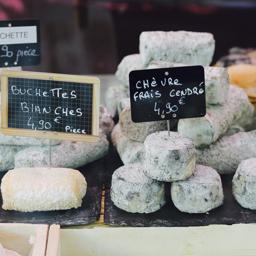 CHETTE
90 PIECE
BUCHETTES
BLANCHES
4,90€ PIECE
CHÈVRE
FRAIS CENDRÉ
4,90€